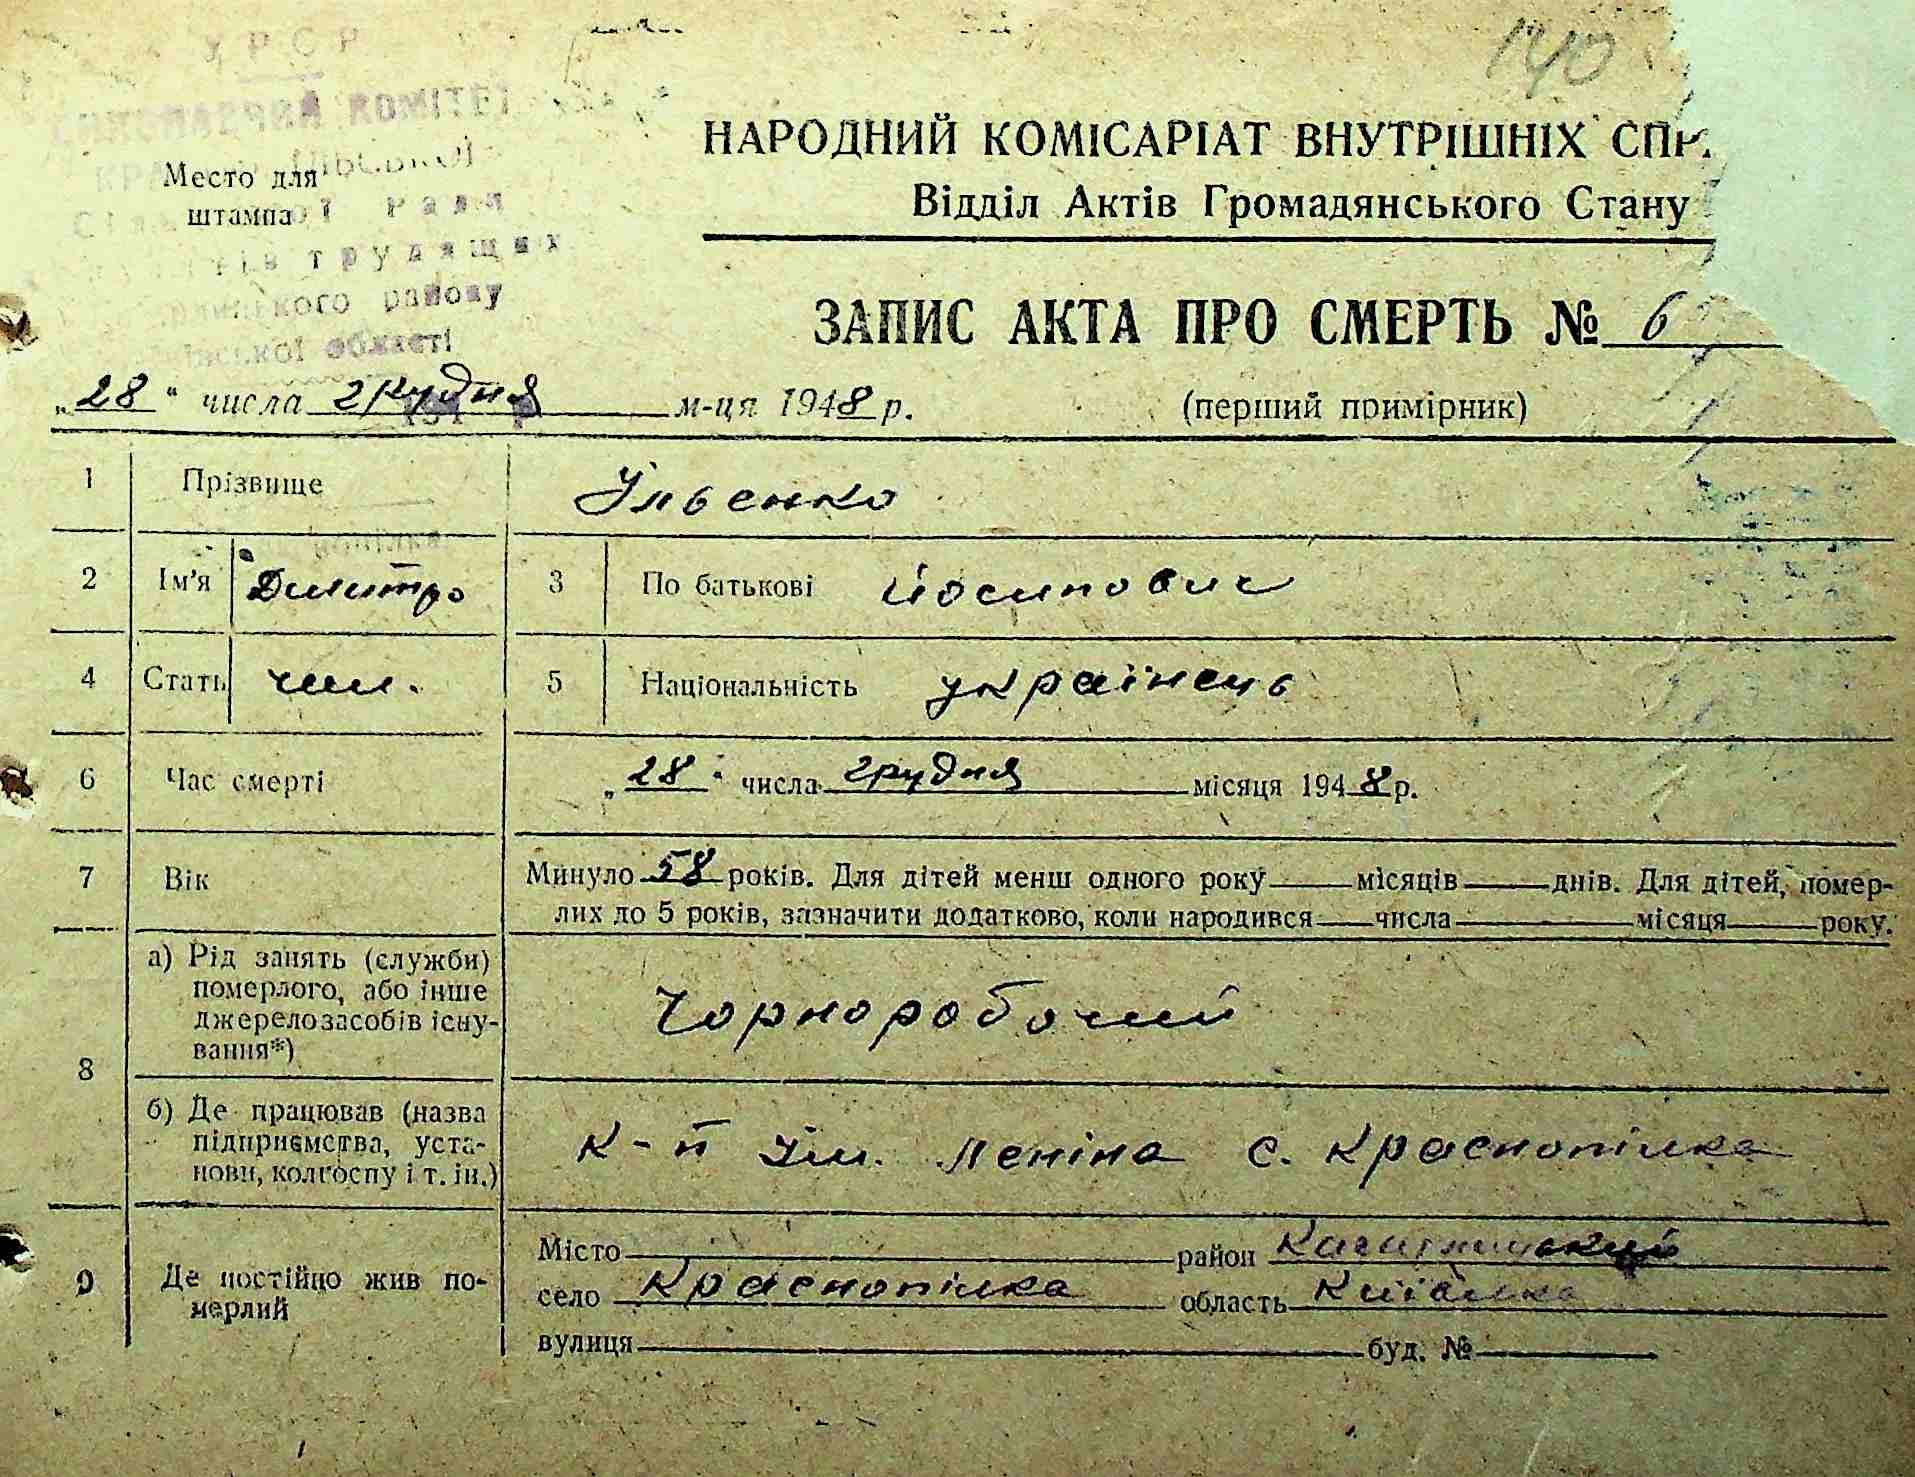 140
УРСР
КОМІТЕТ
НАРОДНИЙ КОМІСАРІАТ ВНУТРІШНІХ СПР
Место для
штампа
Рада
Відділ Актів Громадянського Стану
трудящих
району
області
ЗАПИС АКТА ПРО СМЕРТЬ № 6
„28“ числа грудня м-ця 1948 р.
(перший примірник)
1 Прізвище Ільєнко
2 Ім’я Дмитро 3 По батькові Йосипович
4 Стать чол. 5 Національність українець
6 Час смерті „28“ числа грудня місяця 1948 р.
7 Вік Минуло 58 років. Для дітей менш одного року місяців днів. Для дітей, помер-
лих до 5 років, зазначити додатково, коли народився числа місяця року.
8 а) Рід занять (служби)
померлого, або інше
джерелозасобів існу-
вання*)
Чорноробочий
б) Де працював (назва
підприємства, уста-
нови, колгоспу і т. ін.)
к-п ім. Леніна с. Краснопілка
9 Де постійно жив по-
мерлий
Місто район
село Краснопілка область Київська
вулиця буд. №